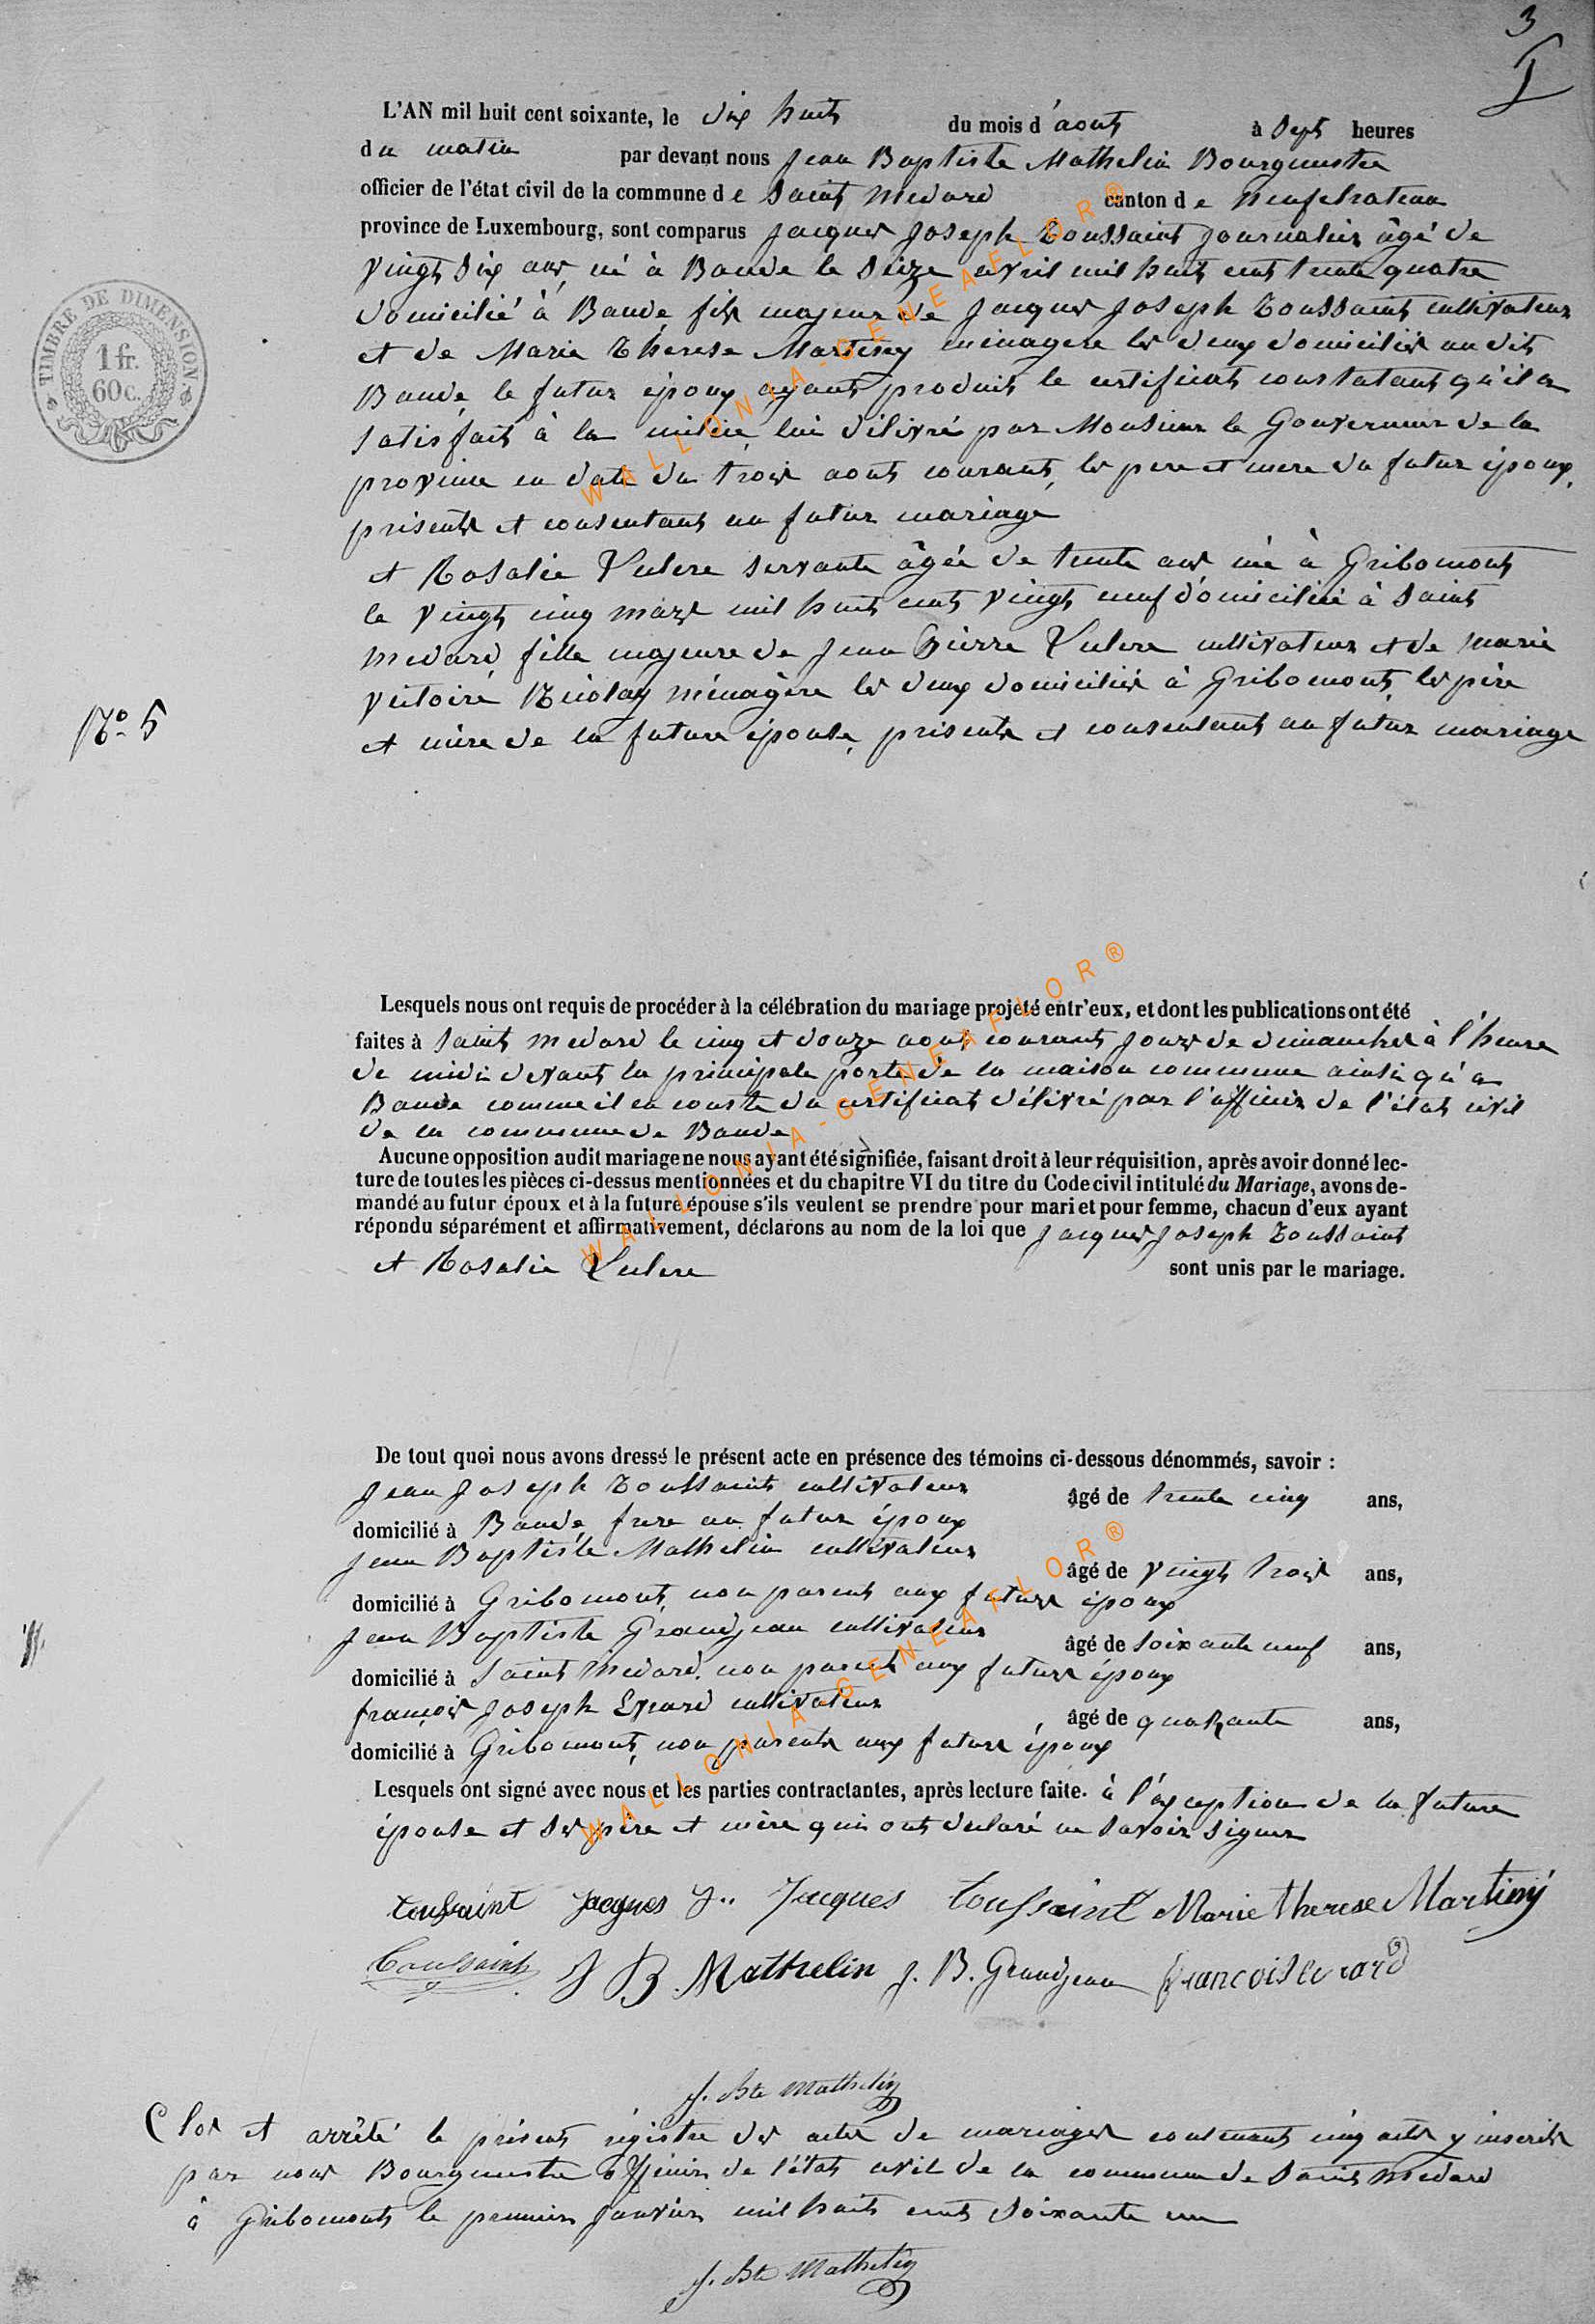 3
L'AN mil huit cent soixante, le dix huit du mois d'aout à Sept heures
du matin par devant nous Jean Baptiste Mathelin Bourgmestre
officier de l'état civil de la commune de Saint Medard canton de neufchateau
province de Luxembourg, sont comparus Jacques Joseph Toussaint journalier âgé de
vingt Six ans, né à Bande le Seize avril mil huit cent trente quatre
domicilié à Bande, fils majeur de Jacques Joseph Toussaint cultivateur
et de Marie Therese Martiny ménagere les deux domiciliés au dit
Bande, le futur époux ayant produit le certificat constatant qu'il a
satisfait à la milice, lui délivré par Monsieur le Gouverneur de la
province en date du trois aout courant, les pere et mere du futur époux,
présents et consentant au futur mariage
et Rosalie Leclere servante âgée de trente ans née à Gribomont
le vingt cinq mars mil huit cent vingt neuf domiciliée à Saint
Medard fille majeure de Jean Pierre Leclere cultivateur et de marie
victoire Nicolay ménagère les deux domiciliés à Gribomont, les père
et mère de la future épouse, présents et consentant au futur mariage
N° 5
TIMBRE DE DIMENSION
1 fr.
60 c.
Lesquels nous ont requis de procéder à la célébration du mariage projeté entr'eux, et dont les publications ont été
faites à Saint Medard le cinq et douze aout courant jours de dimanches à l'heure
de midi devant la principale porte de la maison commune ainsi qu'a
Bande comme il en conste du certificat délivré par l'officier de l'état civil
de la commune de Bande
Aucune opposition audit mariage ne nous ayant été signifiée, faisant droit à leur réquisition, après avoir donné lec-
ture de toutes les pièces ci-dessus mentionnées et du chapitre VI du titre du Code civil intitulé du Mariage, avons de-
mandé au futur époux et à la future épouse s'ils veulent se prendre pour mari et pour femme, chacun d'eux ayant
répondu séparément et affirmativement, déclarons au nom de la loi que Jacques Joseph Toussaint
et Rosalie Leclere sont unis par le mariage.
De tout quoi nous avons dressé le présent acte en présence des témoins ci-dessous dénommés, savoir :
Jean Joseph Toussaint cultivateur âgé de trente cinq ans,
domicilié à Bande, frere au futur époux
Jean Baptiste Mathelin cultivateur âgé de vingt trois ans,
domicilié à Gribomont, non parent aux futurs époux
Jean Baptiste Grandjean cultivateur âgé de soixante neuf ans,
domicilié à Saint Medard, non parent aux futurs époux
françois Joseph Evrard cultivateur âgé de quarante ans,
domicilié à Gribomont, non parents aux futurs époux
Lesquels ont signé avec nous et les parties contractantes, après lecture faite. à l'exception de la future
épouse et ses père et mère qui ont déclaré ne savoir signer
toussaint Jacques J.. Jacques toussaint Marie therese Martiny
Toussaint J B Mathelin J. B. Grandjean francois evrard
J. Bte Mathelin
Clos et arrêté le présent régistre des actes de mariages contenant cinq actes y inscrits
par nous Bourgmestre officier de l'état civil de la commune de Saint Medard
à Gribomont le premier Janvier mil huit cent Soixante un
J. Bte Mathelin
WALLONIA-GENEAFLOR®
WALLONIA-GENEAFLOR®
WALLONIA-GENEAFLOR®